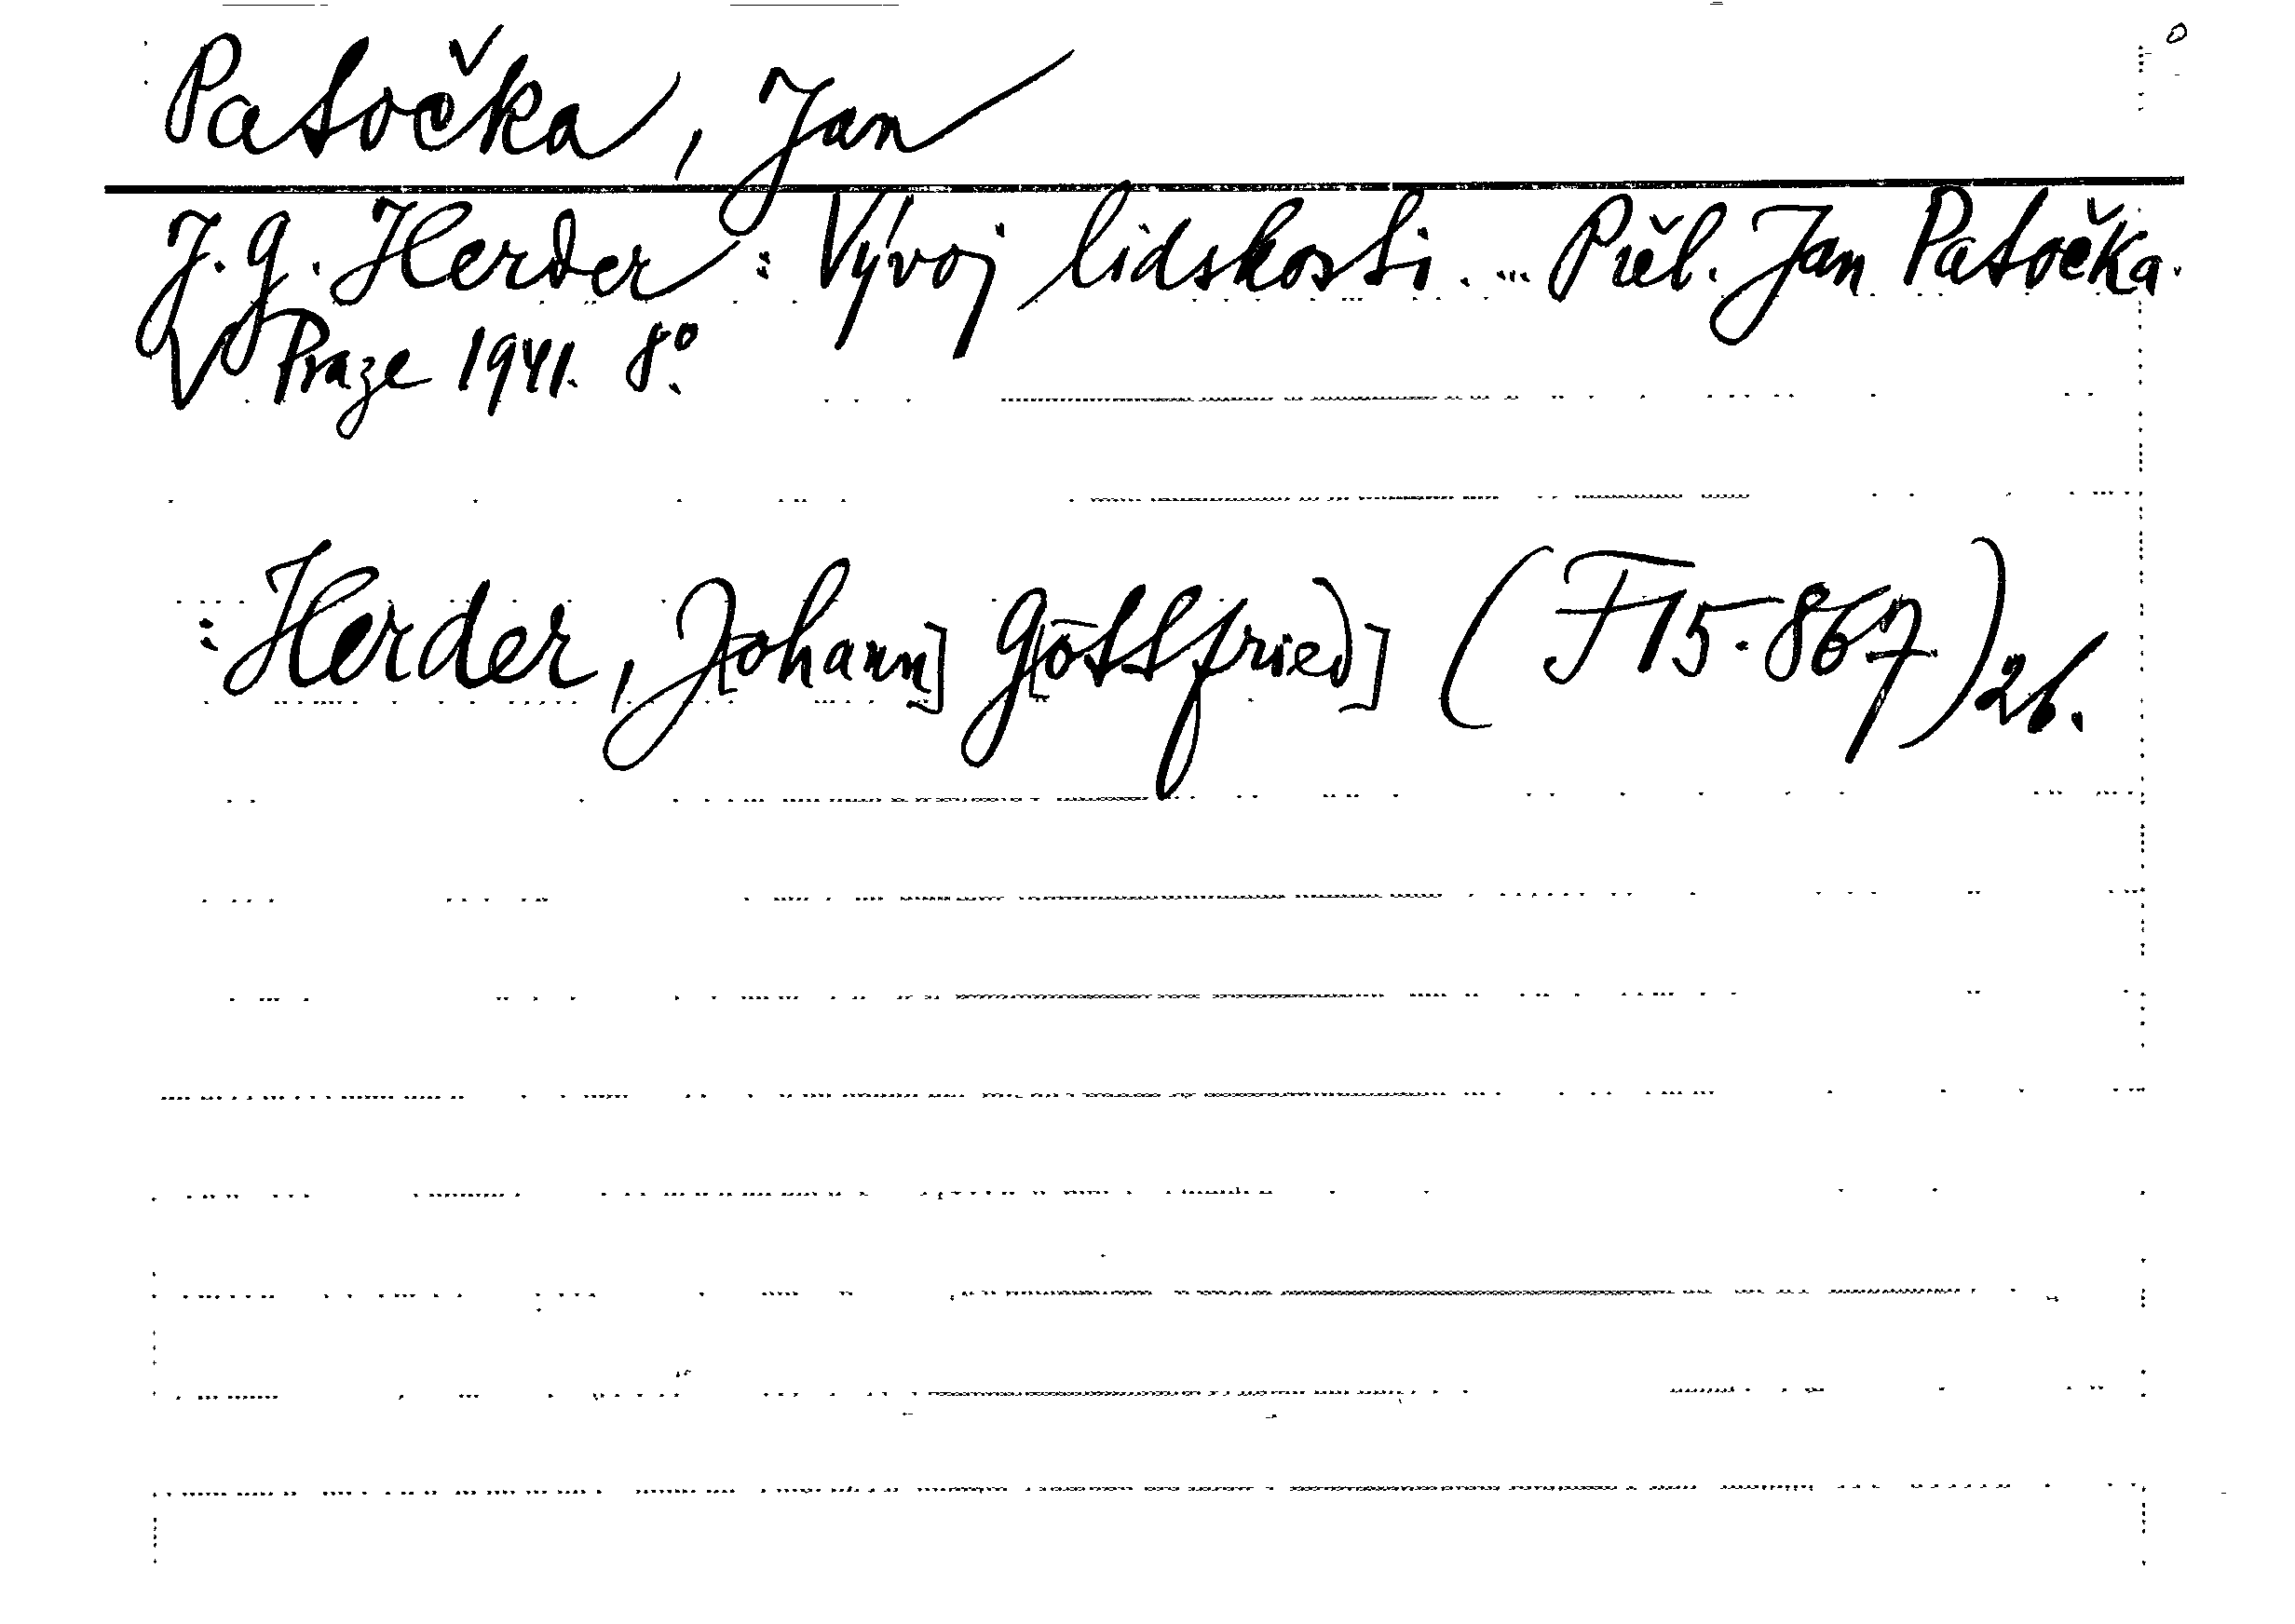 Patočka, Jan
J. G. Herder: Vývoj lidskosti. ... Přel. Jan Patočka.
V Praze 1941. 8°.
: Herder, J[ohann] G[ottfried] (F 15.867) 2b.